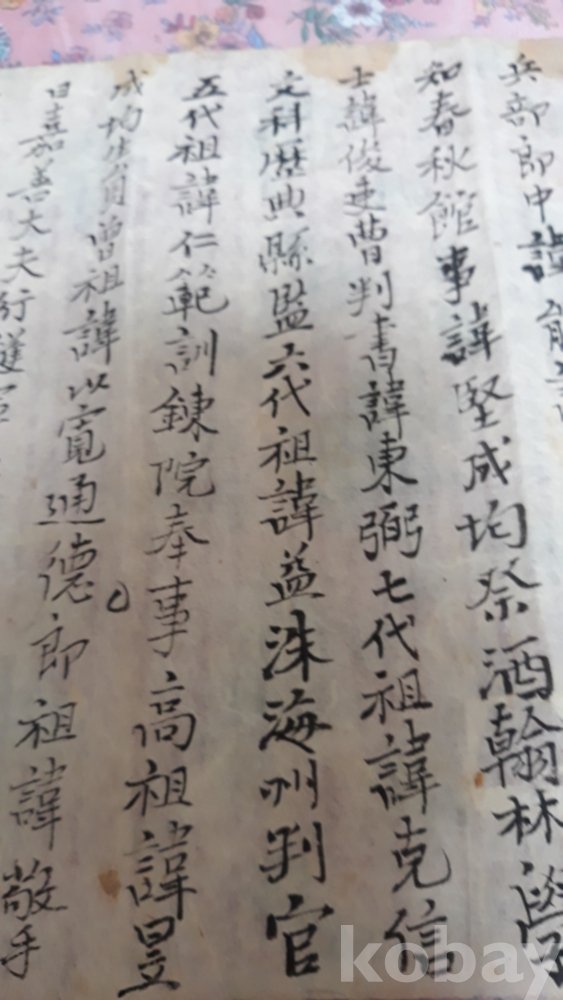 兵部郎中諱
知春秋館事諱堅成均祭酒翰林學
士諱俊吏曹判書諱東弼七代祖諱克信
文科歷典縣監六代祖諱益洙海州判官
五代祖諱仁範訓鍊院奉事高祖諱昱
成均生員曾祖諱以寬通德郎祖諱敬手
曰嘉善大夫行護軍
kobay